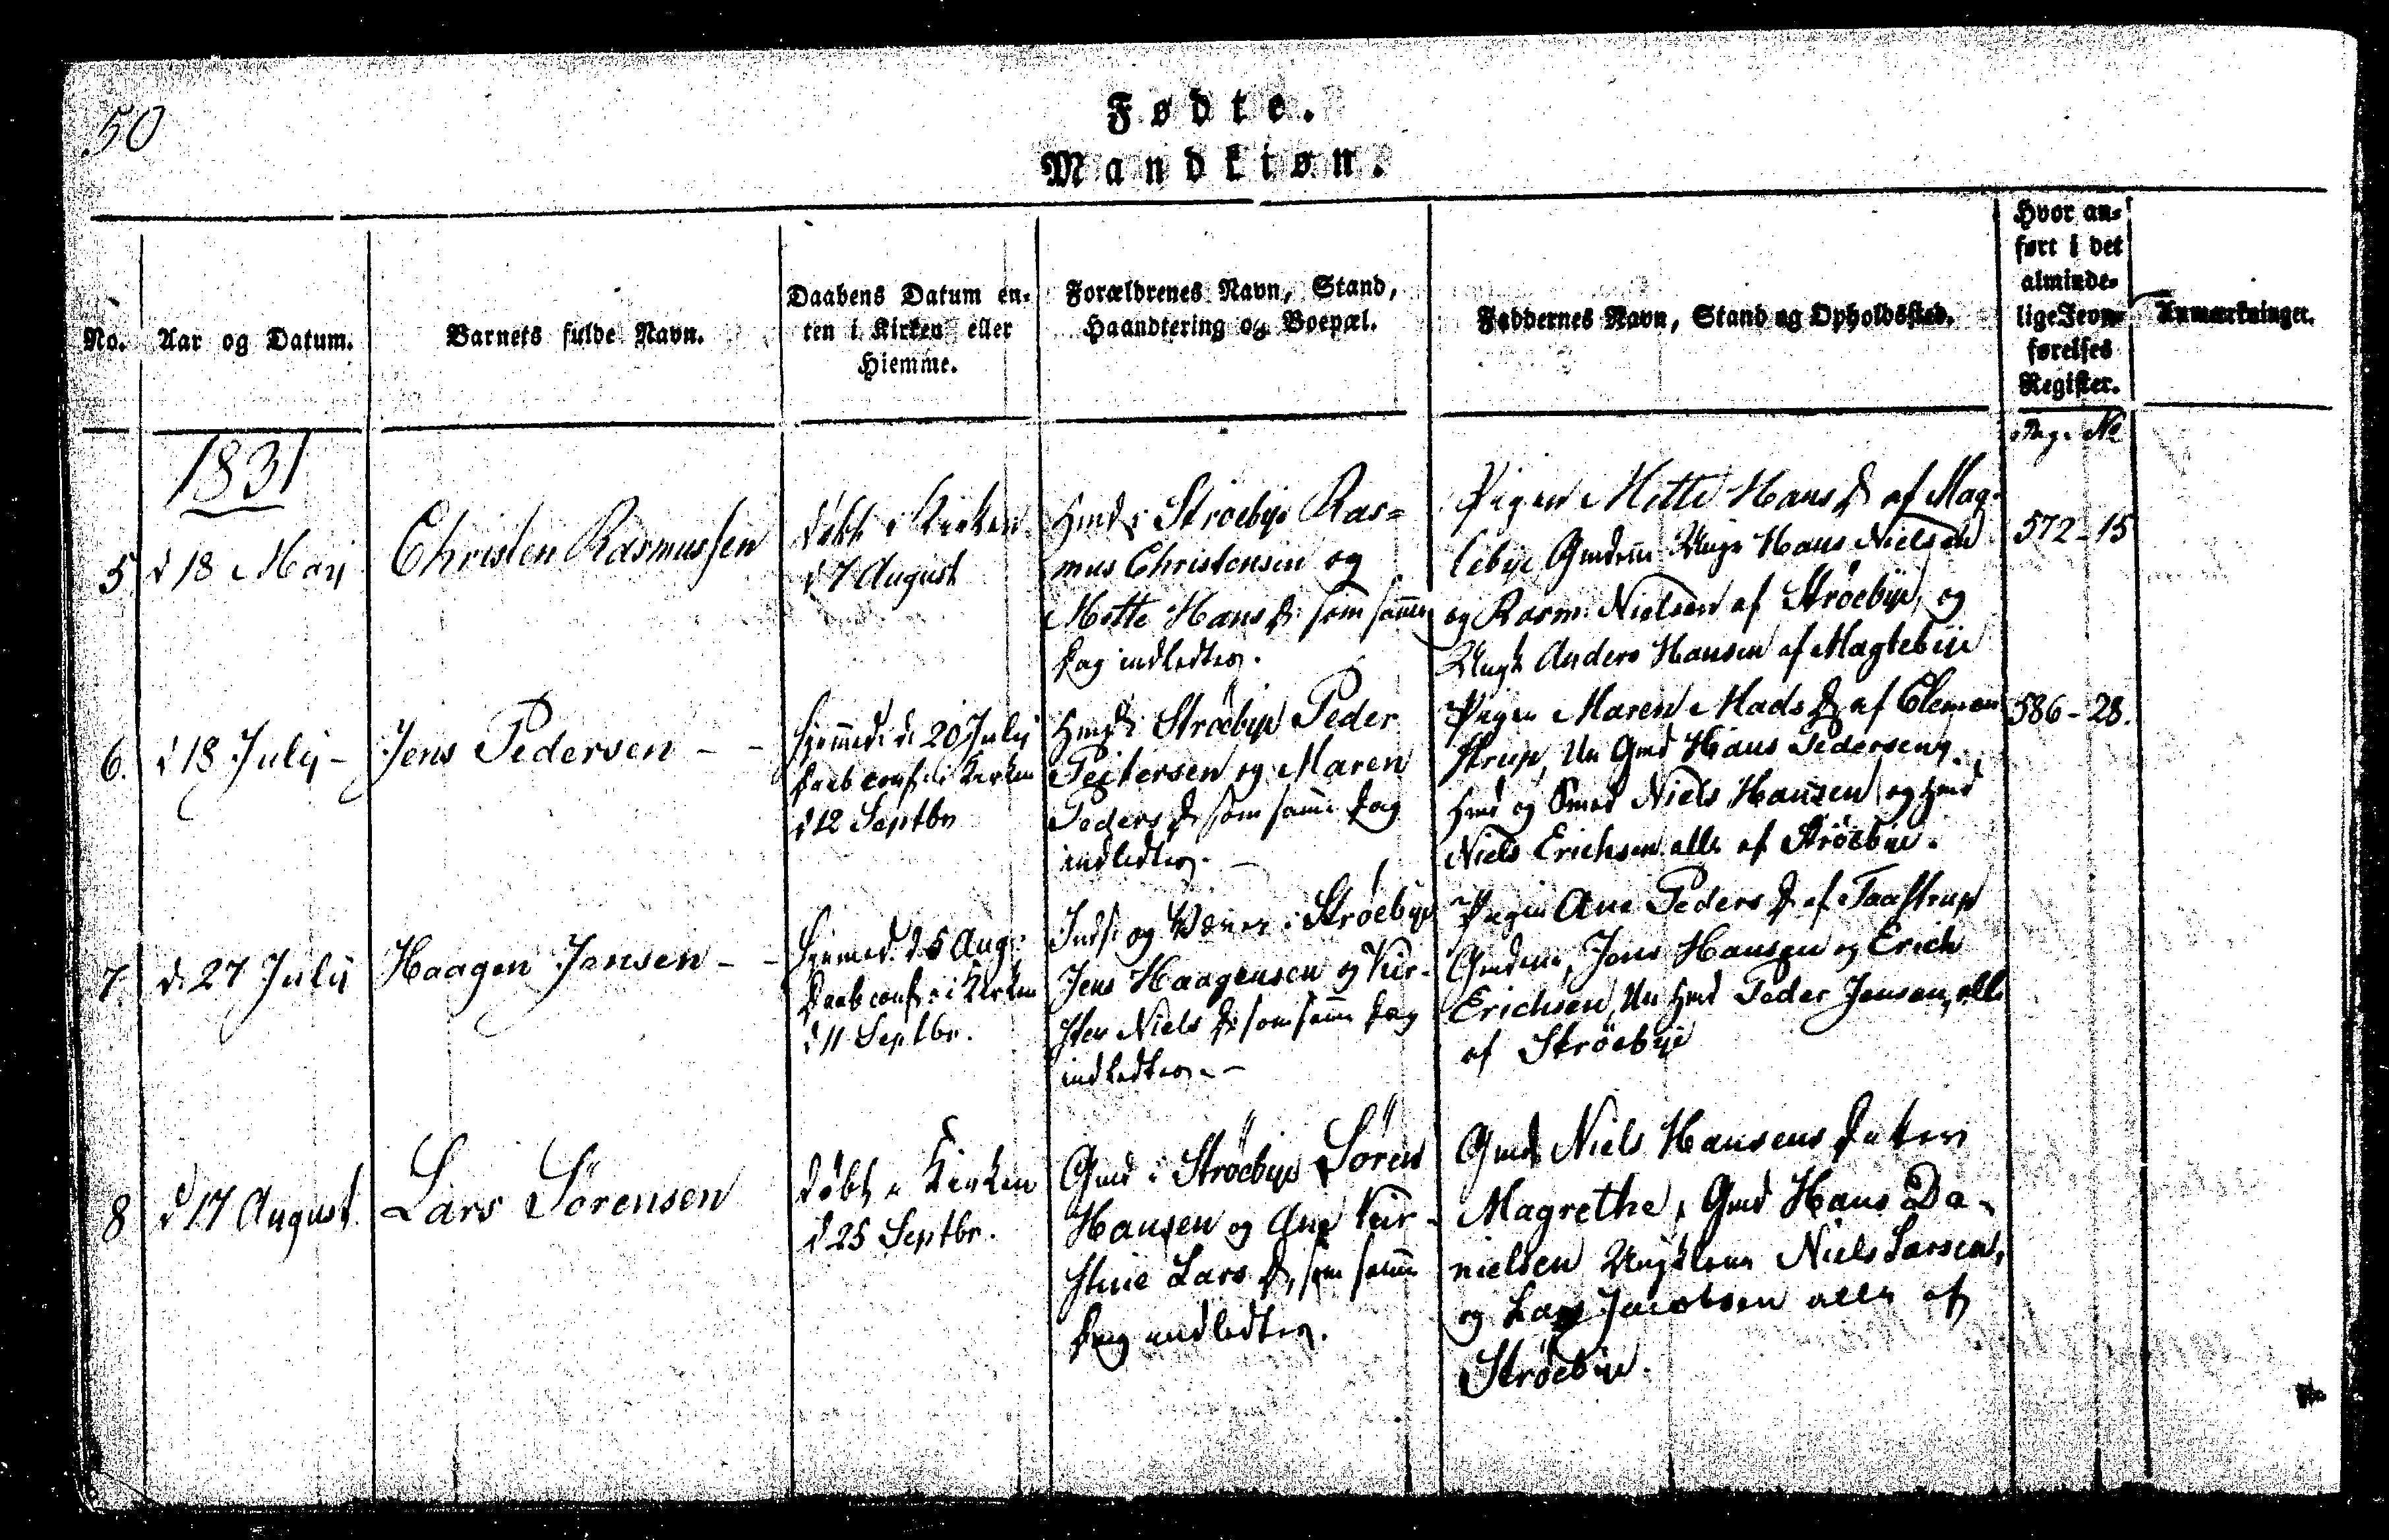 50
Fødte.
Mandkiøn.
No.
Aar og Datum.
Barnets fulde Navn.
Daabens Datum en-
ten i Kirken eller
Hiemme.
Forældrenes Navn, Stand,
Haandtering og Boepæl.
Faddernes Navn, Stand og Opholdssted.
Hvor an-
ført i det
alminde-
lige Jevn-
førelses
Register.
Anmærkninger.
Pag. No
1831
5.
d 18 Maj
Christen Rasmussen
døbt i Kirken
d 7 August
Hmd i Strøebye Ras=
mus Christensen og
Mette Hans D. som samme
Dag indledtes.
Pigen Mette Hans D af Mag-
lebye Gmdene Hans Nielsen
og Rasm. Nielsen af Strøebye, og
Ungk Anders Hansen af Maglebye
572-15
6.
d 18 July -
Jens Pedersen - -
Hjemmed. d. 20 July
Daab conf. i Kirken
d 12 Septbr
Hmd i Strøebye Peder
Peitersen og Maren
Peders D. som samme Dag
indledtes. -
Pigen Maren Mads D af Clemen
strup, Gmd Hans Pedersen,
Hmd og Smed Niels Hansen og Hmd
Niels Erichsen alle af Strøebye.
586-28.
7.
d. 27 July
Haagen Jensen - -
Hjemmed. d. 5 Aug:
Daab conf. i Kirken
d 11 Septbr.
Inds. og Væver i Strøebye
Jens Haagensen og Kir-
sten Niels D. som samme Dag
indledtes. -
Pigen Ane Peders D. af Taastrup
Gmdene, Jens Hansen og Erich
Erichsen, Hmd Peder Jensen, alle
af Strøebye
8
d 17 August.
Lars Sörensen
døbt i Kirken
d 25 Septbr.
Gmd i Strøebye Sören
Hansen og Ane Kir-
stine Lars D, som samme
Dag indledtes.
Gmd Niels Hansens Datter
Magrethe, Gmd Hans Da-
nielsen Ungklene Niels Larsen,
og Lars Jacobsen alle af
Strøebye.